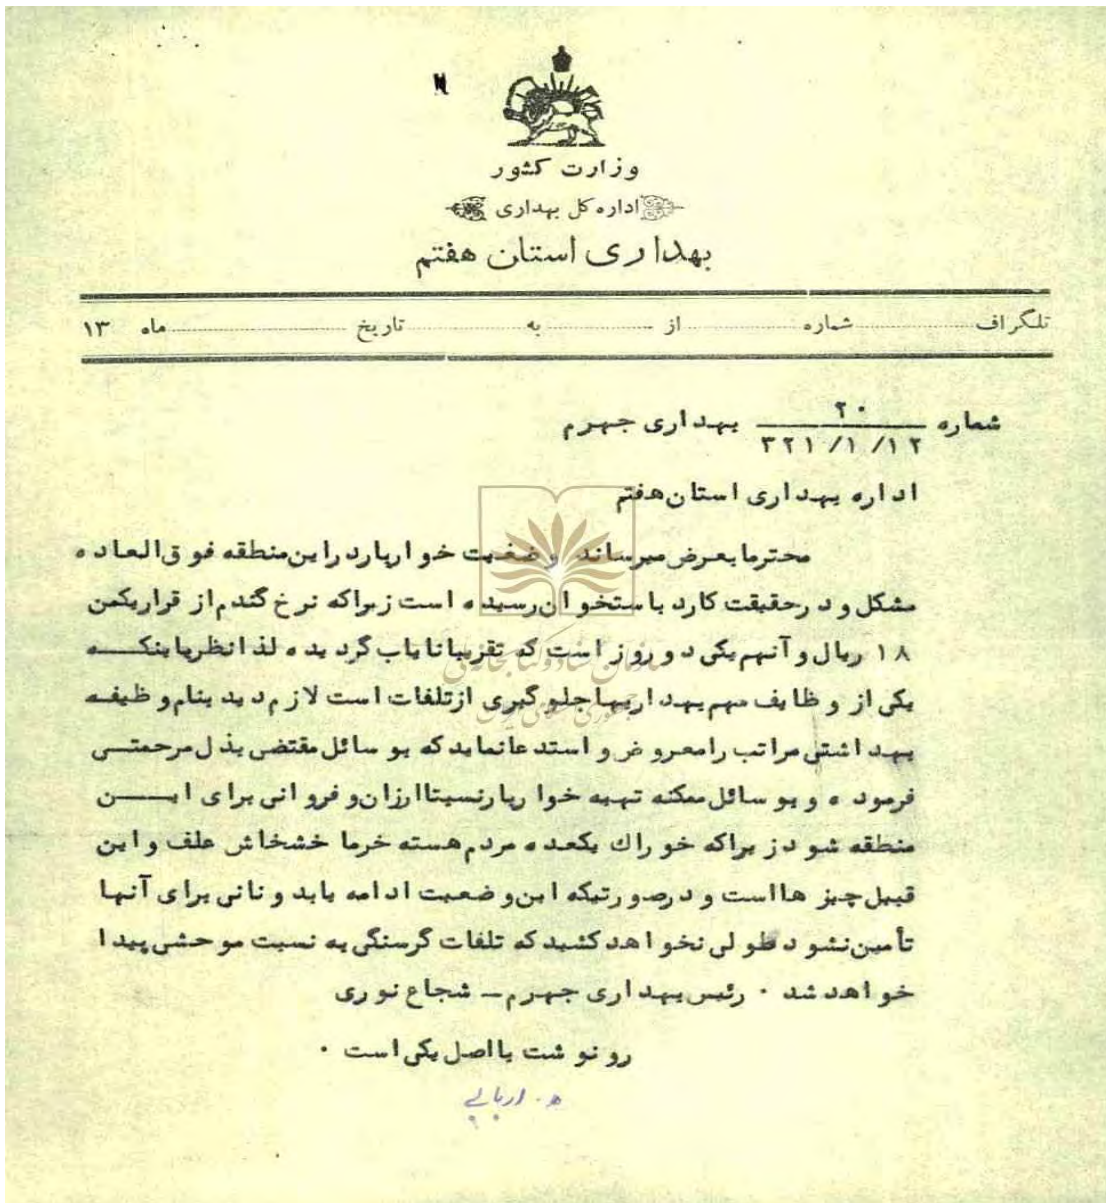 وزارت کشور
اداره کل بهداری
بهداری استان هفتم
تلگراف شماره از به تاریخ ماه ۱۳
شماره ۲۰ بهداری جهرم
۳۲۱/۱/۱۲
اداره بهداری استان هفتم
محترما بعرض میرساند وضعیت خواربار در این منطقه فوق العاده
مشکل و در حقیقت کارد باستخوان رسیده است زیرا که نرخ گندم از قرار یکمن
۱۸ ریال و آنهم یکی دو روز است که تقریبا نایاب گردیده لذا نظر باینکه
یکی از وظایف مهم بهداریها جلوگیری از تلفات است لازم دید بنام وظیفه
بهداشتی مراتب را معروض و استدعا نماید که بوسائل مقتضی بذل مرحمتی
فرموده و بوسائل ممکنه تهیه خواربار نسبتا ارزان و فروانی برای این
منطقه شود زیرا که خوراك یکعده مردم هسته خرما خشخاش علف و این
قبیل چیز ها است و در صورتیکه این وضعیت ادامه یابد و نانی برای آنها
تأمین نشود طولی نخواهد کشید که تلفات گرسنگی به نسبت موحشی پیدا
خواهد شد ۰ رئیس بهداری جهرم ـ شجاع نوری
رونوشت با اصل یکی است ۰
سازمان اسناد و کتابخانه ملی
جمهوری اسلامی ایران